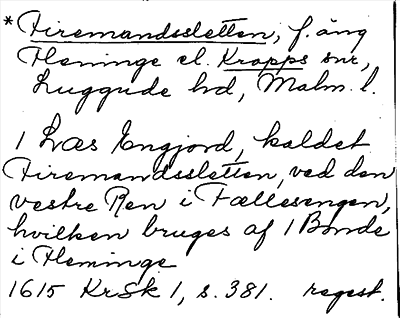 * Firemandssletten, f. äng
Fleninge el. Kropps snr,
Luggude hd, Malm. l.
1 Læs Engjord, kaldet
Firemandssletten, ved den
vestre Ren i Fællesengen,
hvilken bruges af 1 Bonde
i Fleninge
1615 KrSk 1, s. 381. regest.